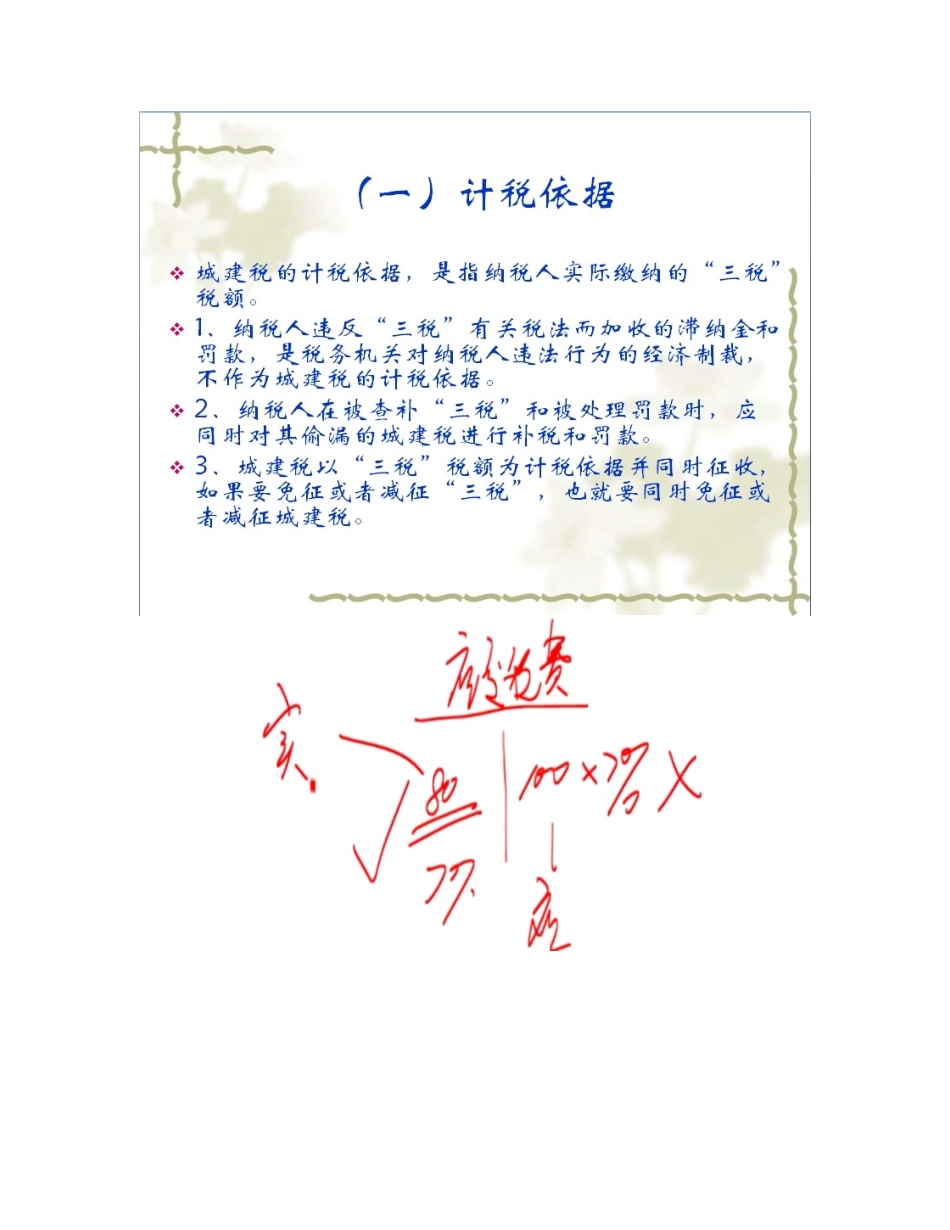 （一）计税依据
城建税的计税依据，是指纳税人实际缴纳的“三税”
税额。
1、纳税人违反“三税”有关税法而加收的滞纳金和
罚款，是税务机关对纳税人违法行为的经济制裁，
不作为城建税的计税依据。
2、纳税人在被查补“三税”和被处理罚款时，应
同时对其偷漏的城建税进行补税和罚款。
3、城建税以“三税”税额为计税依据并同时征收，
如果要免征或者减征“三税”，也就要同时免征或
者减征城建税。
实
80
100×7%
7%
应